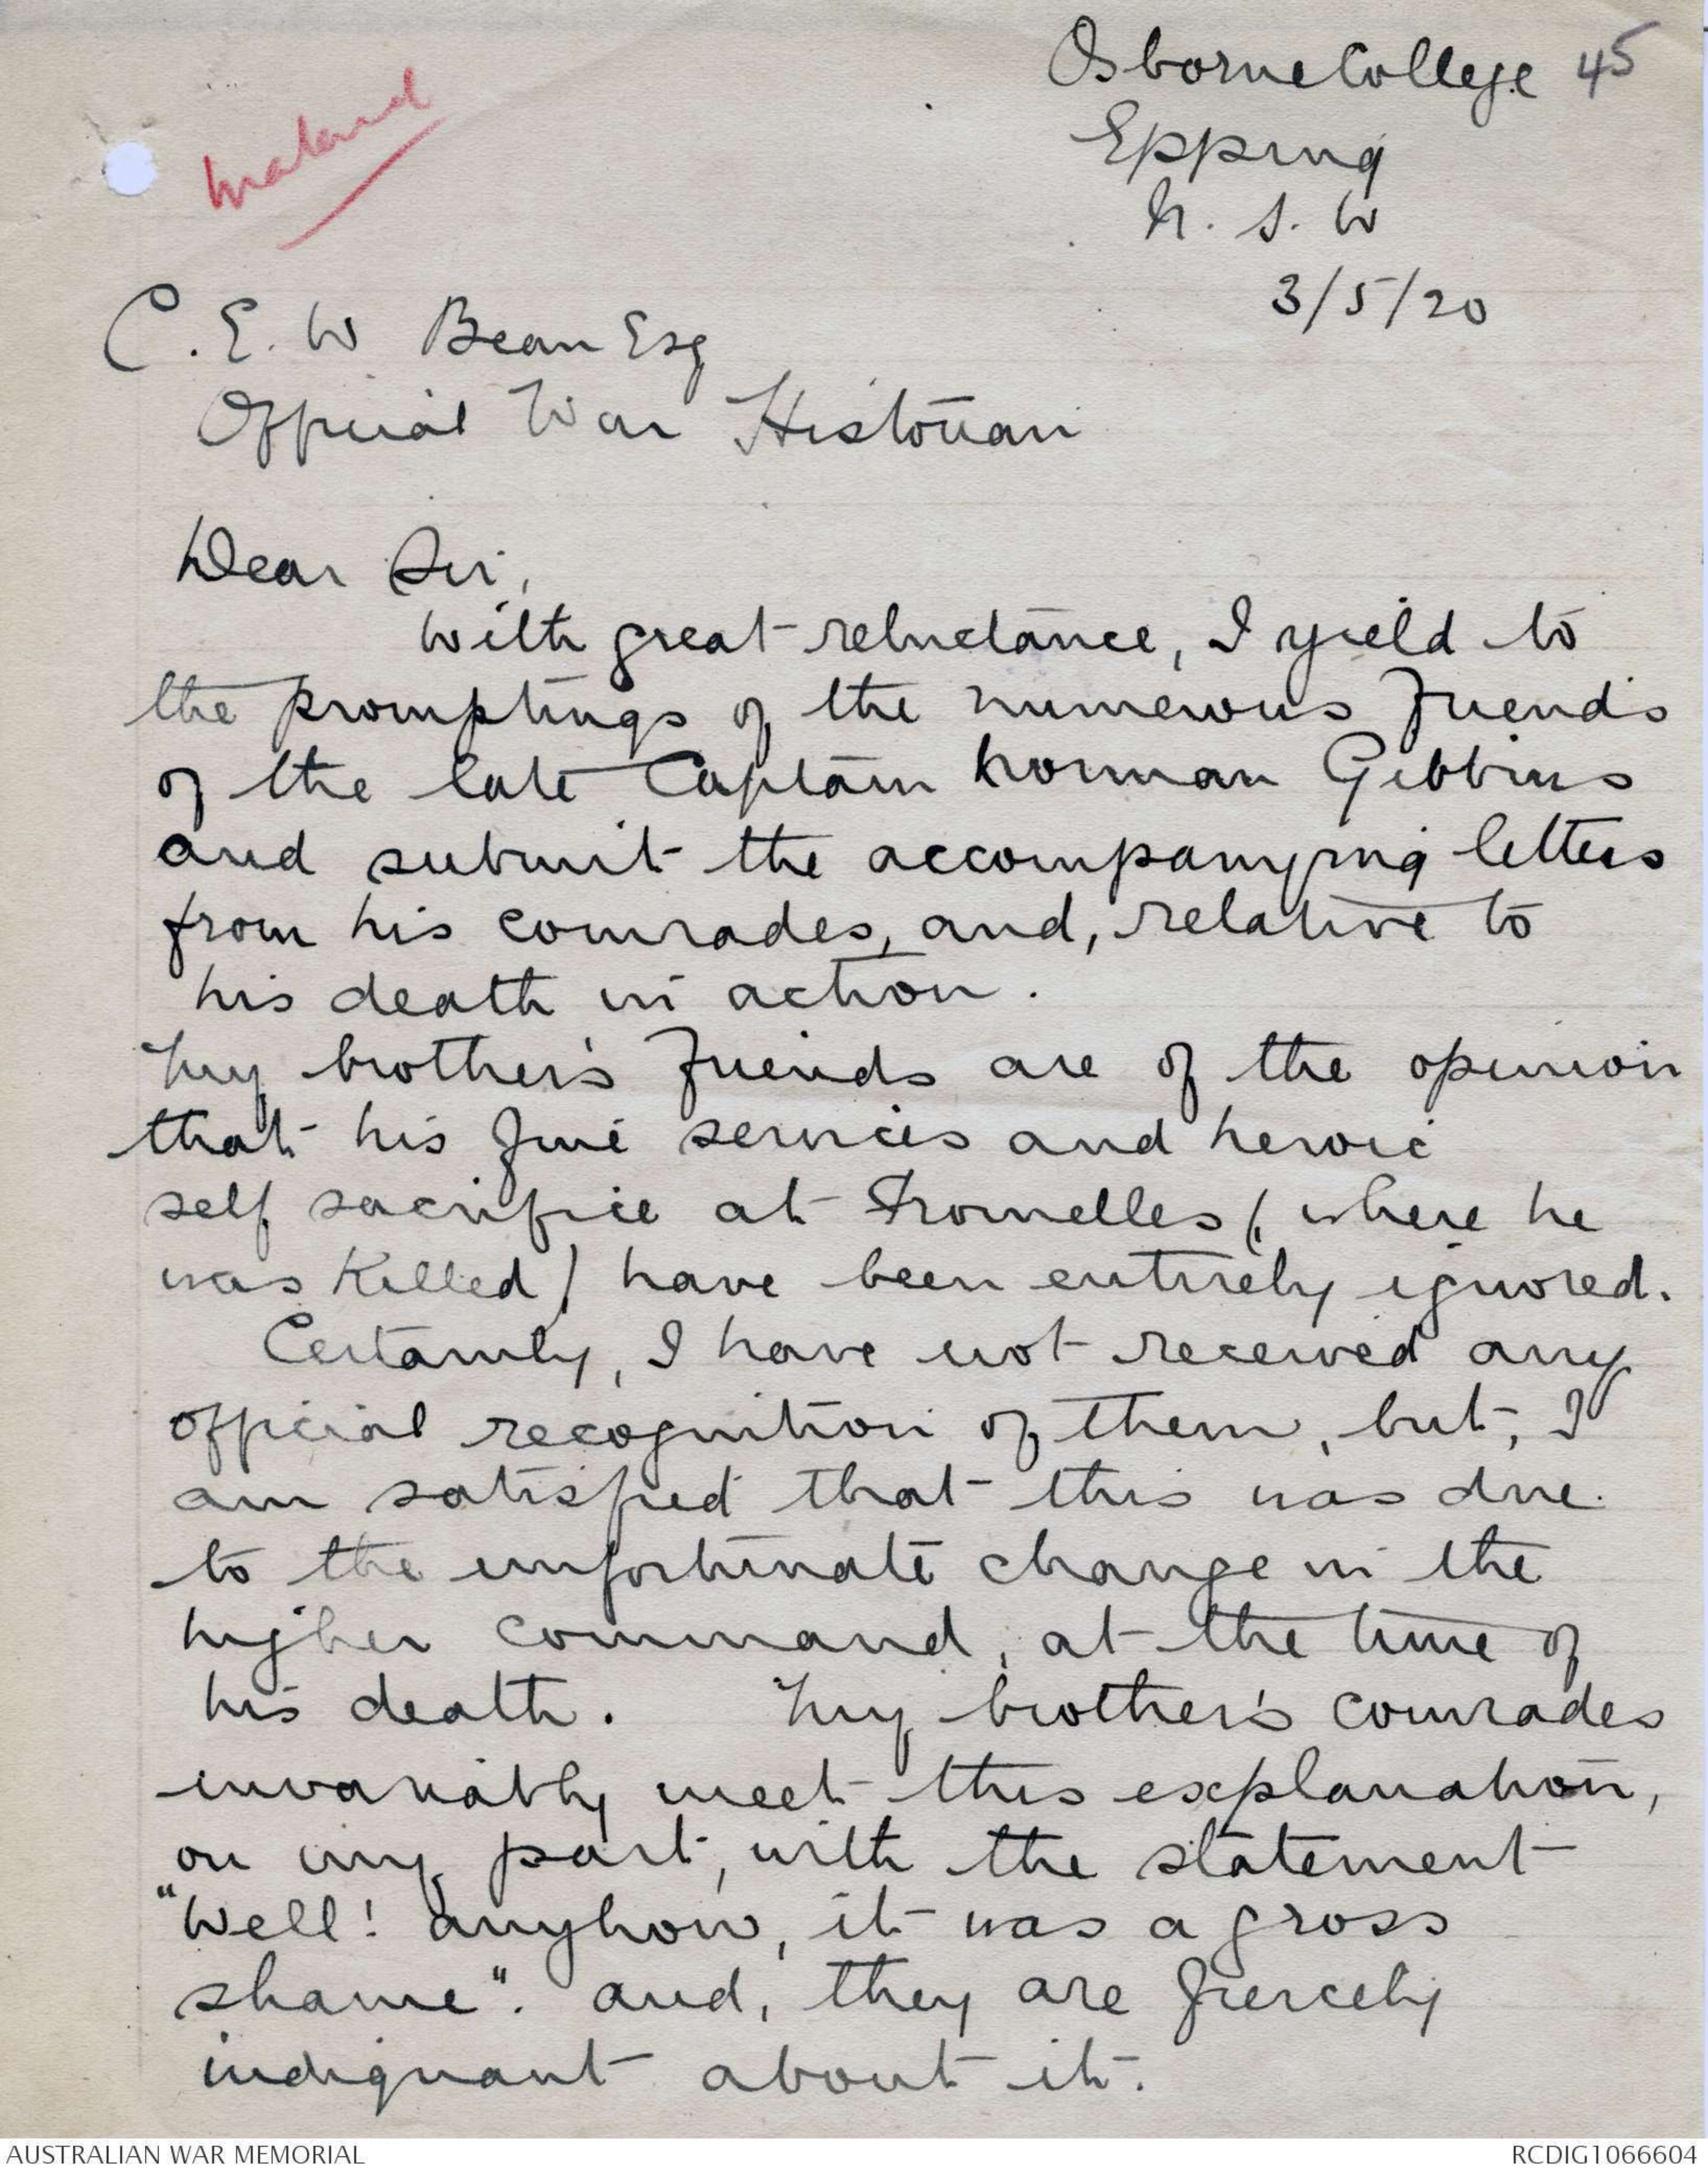 Osborne College 45
Epping
N. S. W
3/5/20
C. E. W Bean Esq
Official War Historian
Dear Sir,
With great reluctance, I yield to
the promptings of the numerous Friends
of the late Captain Norman Gibbins
and submit the accompanying letters
from his comrades, and, relative to
his death in action.
My brother's Friends are of the opinion
that his fine services and heroic
self sacrifice at Fromelles (where he
was Killed) have been entirely ignored.
Certainly, I have not received any
official recognition of them, but, I
am satisfied that this was due
to the unfortunate change in the
higher command, at the time of
his death. My brother's comrades
invariably meet this explanation,
on my part, with the statement
"Well! anyhow, it was a gross
shame". and, they are fiercely
indignant about it.
AUSTRALIAN WAR MEMORIAL
RCDIG1066604